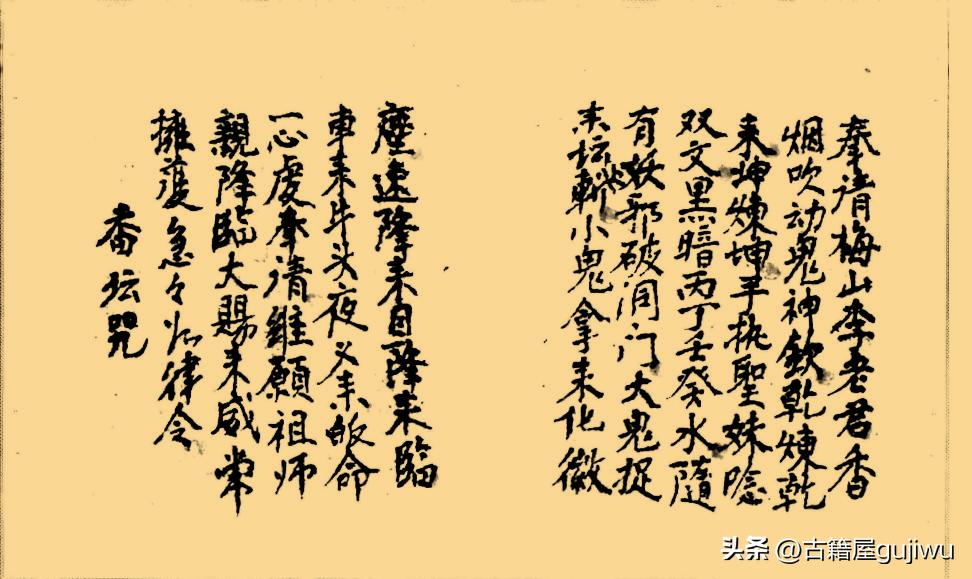 奉請梅山李老君香
烟吹动鬼神欽乾煉乾
来坤煉坤手执聖妹隐
双文黑暗丙丁壬癸水隨
有妖邪破洞门大鬼捉
来坛斬小鬼拿来化微
座速降来自降来臨
車来牛头夜义来皈命
一心虔奉請雖願祖师
親降臨大賜来威常
擁護急々如律令
番坛咒
头条 @古籍屋gujiwu